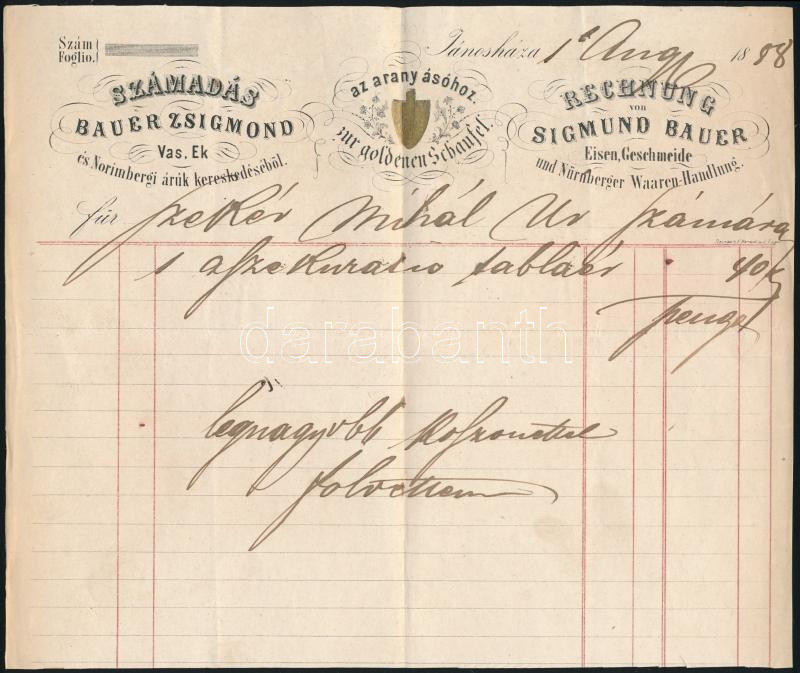 Szám
Foglio.
Jánosháza 1t Aug 1888
SZÁMADÁS
BAUER ZSIGMOND
Vas, Ek
és Norimbergi árúk kereskedéséből.
az arany ásóhoz.
zur goldenen Schaufel.
RECHNUNG
von
SIGMUND BAUER
Eisen, Geschmeide
und Nürnberger Waaren-Handlung.
für Szekér Mihál Ur számára
1 aszekuratio tabláér 40 k
legnagyobb köszönettel
fölvettem
darabanth